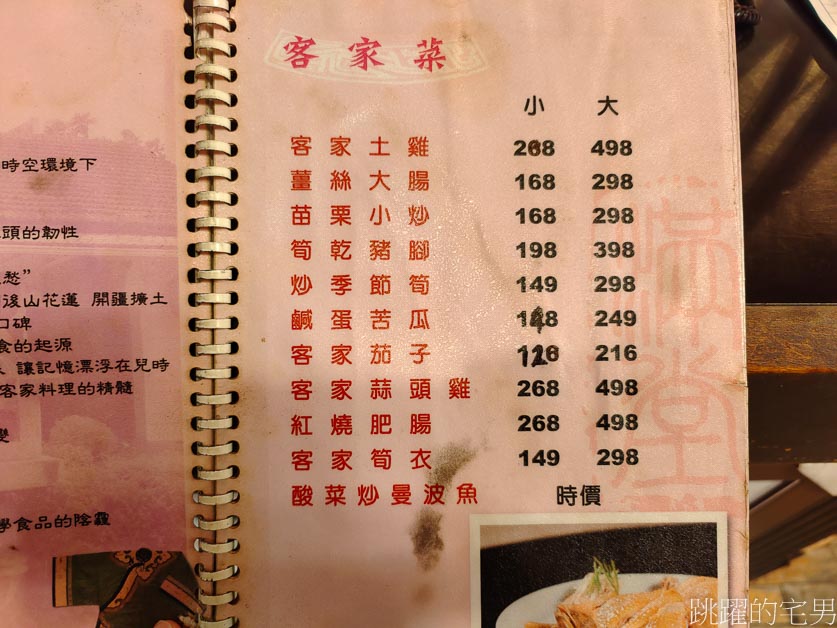 時空環境下
頭的韌性
愁”
後山花蓮 開疆擴土
口碑
食的起源
讓記憶漂浮在兒時
客家料理的精髓
學食品的陰霾
客家菜
小 大
客家土雞 268 498
薑絲大腸 168 298
苗栗小炒 168 298
筍乾豬腳 198 398
炒季節筍 149 298
鹹蛋苦瓜 249
客家茄子 216
客家蒜頭雞 268 498
紅燒肥腸 268 498
客家筍衣 149 298
酸菜炒曼波魚 時價
跳躍的宅男